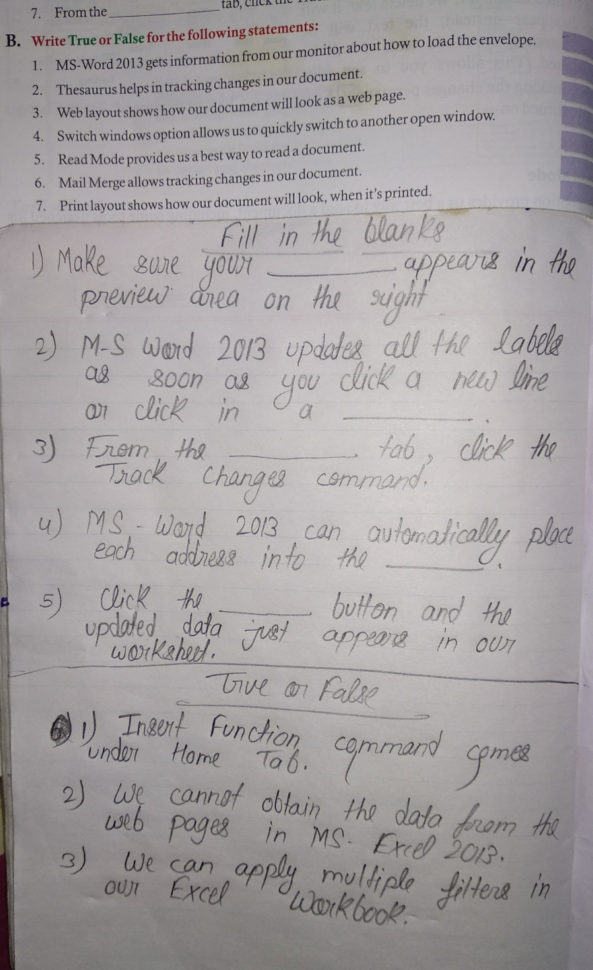 7. From the ____________ tab, click the
B. Write True or False for the following statements:
1. MS-Word 2013 gets information from our monitor about how to load the envelope.
2. Thesaurus helps in tracking changes in our document.
3. Web layout shows how our document will look as a web page.
4. Switch windows option allows us to quickly switch to another open window.
5. Read Mode provides us a best way to read a document.
6. Mail Merge allows tracking changes in our document.
7. Print layout shows how our document will look, when it's printed.
Fill in the blanks
1) Make sure your ____________ appears in the
preview area on the right
2) M-S Word 2013 updates all the labels
as soon as you click a new line
or click in a ____________.
3) From the ____________ tab, click the
Track Changes command.
4) MS - Word 2013 can automatically place
each address into the ____________.
5) Click the ____________ button and the
updated data just appears in our
worksheet.
True or False
1) Insert Function command comes
under Home Tab.
2) We cannot obtain the data from the
web pages in MS- Excel 2013.
3) We can apply multiple filters in
our Excel Workbook.